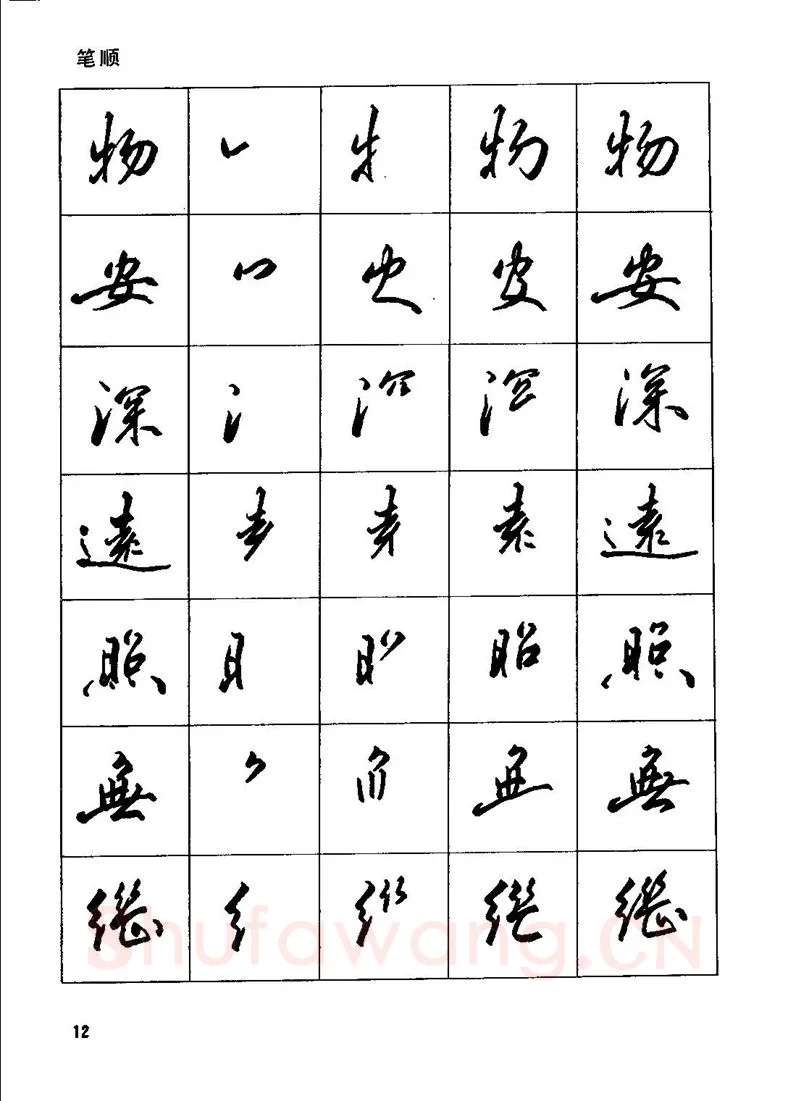 笔顺
物 物
安 安
深 深
遠 遠
照 照
無 無
繼 繼
Shufawang.CN
12